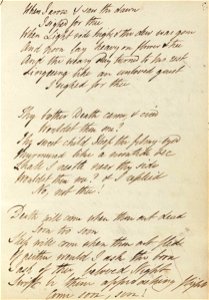 When I arose & saw the dawn
I sighed for thee
When Light rode high, & the dew was gone
And noon lay heavy on flower & tree
And the weary Day turned to her rest
Lingering like an unloved guest
I sighed for thee
Thy brother Death came, & cried
Wouldst thou me?
Thy sweet child Sleep, the filmy eyed
Murmured like a noontide bee
Shall I nestle near thy side
Wouldst thou me? & I replied
No, not thee!
Death will come when thou art dead
Soon, too soon
Sleep will come when thou art fled
Of neither would I ask the boon
I ask of thee, beloved Night
Swift be thine approaching flight
Come soon, soon!